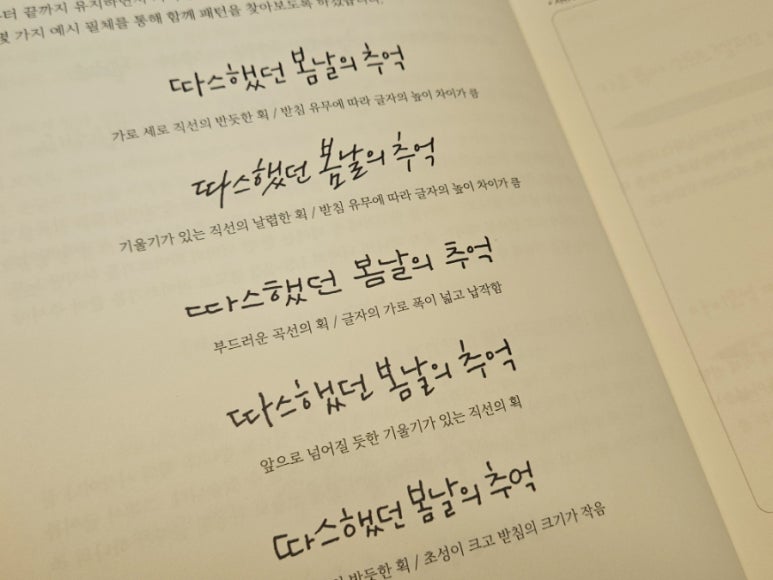 끝까지 유지하면서
가지 예시 필체를 통해 함께 패턴을 찾아보도록 하겠습니다.
따스했던 봄날의 추억
가로 세로 직선의 반듯한 획 / 받침 유무에 따라 글자의 높이 차이가 큼
따스했던 봄날의 추억
기울기가 있는 직선의 날렵한 획 / 받침 유무에 따라 글자의 높이 차이가 큼
따스했던 봄날의 추억
부드러운 곡선의 획 / 글자의 가로 폭이 넓고 납작함
따스했던 봄날의 추억
앞으로 넘어질 듯한 기울기가 있는 직선의 획
따스했던 봄날의 추억
반듯한 획 / 초성이 크고 받침의 크기가 작음